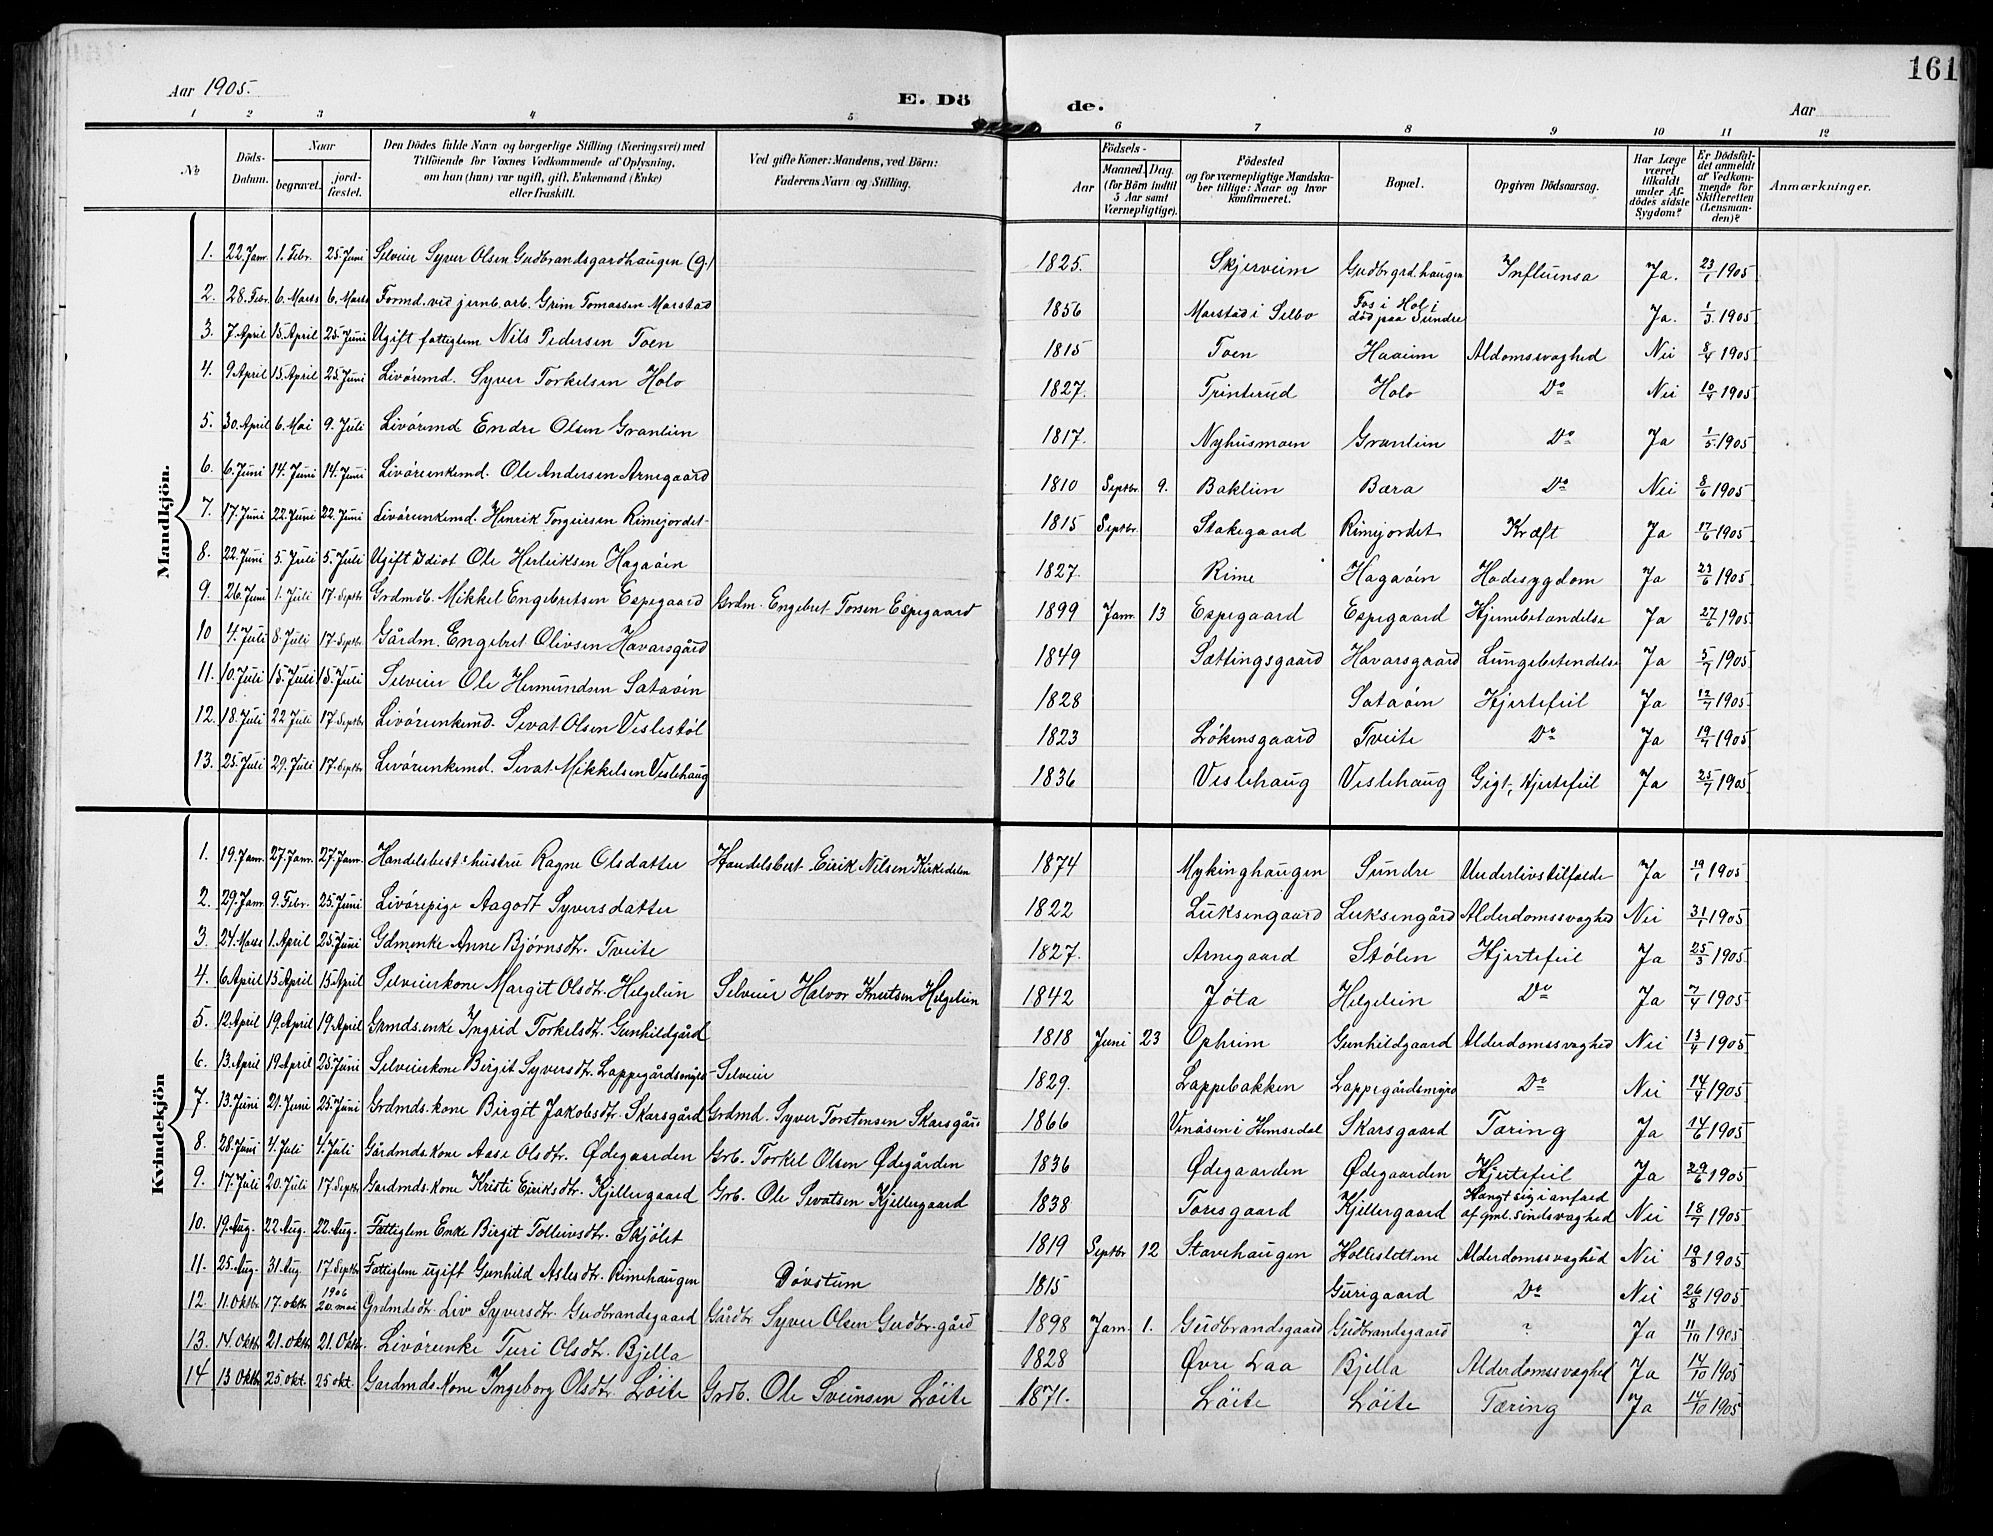 161
Aar 1905.
E. Döde.
Aar
1 2 3 4 5 6 7 8 9 10 11 12
No
Döds-Datum.
Naar
begravet.
jordfæstet.
Den Dödes fulde Navn og borgerlige Stilling (Næringsvei) med
Tilföiende for Voxnes Vedkommende af Oplysning,
om han (hun) var ugift, gift, Enkemand (Enke)
eller fraskilt.
Ved gifte Koner: Mandens, ved Börn:
Faderens Navn og Stilling.
Födsels-
Aar
Maaned. Dag.
(for Börn indtil
5 Aar samt
Værnepligtige).
Födested
og for værnepligtige Mandskaber tillige: Naar og hvor
konfirmeret.
Bopæl.
Opgiven Dödsaarsag.
Har Læge
været
tilkaldt
under Afdödes sidste
Sygdom?
Er Dödsfaldet anmeldt
af Vedkommende for
Skifteretten
(Lensmanden)?
Anmærkninger.
Mandkjön.
1. 22. Janr. 1. Febr. 25. Juni Selveier Syver Olsen Gudbrandsgardhaugen (g.) 1825. Skjerveim Gudbr.grd.haugen Influensa Ja. 23/1 1905
2. 28. Febr. 6. Marts 6. Marts Formd. ved jernb.arb. Grim Tomassen Morstad 1856 Morstad i Selbo Fos i Hol i død paa Sundre Ja. 1/3 1905
3. 7. April 15. April 25. Juni Ugift fattiglem Nils Pedersen Toen 1815 Toen Haaeim Aldomssvaghed Nei 8/4 1905
4. 9. April 15. April 25. Juni Livøremd. Syver Torkelsen Holo 1827. Trinterud Holo Do Nei 10/4 1905
5. 30. April 6. Mai 9. Juli Livøremd Endre Olsen Granlien 1817. Nyhusmoen Granlien Do Ja 1/5 1905
6. 6. Juni 14. Juni 14. Juni Livørenkemd. Ole Andersen Arnegaard 1810 Septbr. 9. Baklien Bæra Do Nei 8/6 1905
7. 17. Juni 22. Juni 22. Juni Livørenkemd. Henrik Torgeirsen Rimejordet 1815 Septbr. Stakegaard Rimejordet Kræft Ja 17/6 1905
8. 22. Juni 5. Juli 5. Juli Ugift Idiot Ole Herleiksen Hagaøin 1827. Rime Hagaøin Hadesygdom Ja 23/6 1905
9. 26. Juni 1. Juli 17. Septbr Grdmsb. Mikkel Engebretsen Espegaard Grdm. Engebret Torsen Espegaard 1899 Janr. 13 Espegaard Espegaard Hjernebetændelse Ja 27/6 1905
10 4. Juli 8. Juli 17. Septbr Gårdm. Engebret Olivsen Havarsgård 1849 Sættingsgaard Havarsgaard Lungebetendelse Ja 5/7 1905
11. 10. Juli 15. Juli 15. Juli Selveier Ole Hermundsen Sataøin 1828 Sataøin Hjertefeil Ja 12/7 1905
12. 18. Juli 22 Juli 17. Septbr Livørenkemd. Sevat Olsen Veslestøl 1823 Løkensgaard Tveite Do Ja 19/7 1905
13. 25. Juli 29. Juli 17. Septbr Livørenkemd. Sevat Mikkelsen Veslehaug 1836 Veslehaug Veslehaug Gigt, Hjertefeil Ja 25/7 1905
Kvindekjön
1. 19. Janr. 27. Janr. 27. Janr. Handelsbest. hustru Ragne Olsdatter Handelsbest. Eirik Nilsen Kirkedelen 1874 Mykinghaugen Sundre Underlivstilfælde Ja 19/1 1905
2. 29. Janr. 9. Febr. 25. Juni Livørepige Aagodt Syversdatter 1822 Luksengaard Luksengård Alderdomssvaghed Nei 31/1 1905
3. 24. Marts 1. April 25. Juni Gdmenke Anne Bjørnsdtr. Tveite 1827. Arnegaard Stølen Hjertefeil Ja 25/3 1905
4. 6. April 15. April 15. April Selveierkone Margit Olsdtr. Helgelien Selveier Halvor Knutsen Helgelien 1842 Jøta Helgelien Do Ja 7/4 1905
5. 12. April 19. April 19. April Grmds.enke Ingrid Torkelsdtr. Gunhildgård 1818 Juni 23 Opheim Gunhildgaard Alderdomssvaghed Nei 13/4 1905
6. 13. April 19. April 25. Juni Selveierkone Birgit Syversdtr. Lappegårdsmyrd Selveier 1829. Lappebakken Lappegårdsmyrd Do Nei 14/4 1905
7. 13. Juni 21. Juni 25. Juni Grdmds.kone Birgit Jakobsdtr. Skarsgård Grdmd. Syver Torstensen Skarsgård 1866 Venåsen i Hemsedal Skarsgaard Tæring Ja 14/6 1905
8. 28. Juni 4. Juli 4. Juli Gårdmds.kone Aase Olsdtr. Ødegaarden Grb. Torkel Olsen Ødegården 1836 Ødegaarden Ødegaarden Hjertefeil Ja 29/6 1905
9. 17. Juli 20. Juli 17. Septbr Gardmds.kone Kristi Eiriksdtr. Kjellergaard Grb. Ole Sevatsen Kjellergaard 1838 Toresgaard Kjellergaard Hængt sig i anfald af gml. Sindsvaghed Nei 18/7 1905
10. 19. Aug. 22. Aug. 22. Aug. Fattiglem Enke Birgit Tolleivsdtr. Skjølet 1819 Septbr 12 Stavehaugen Holleslettene Alderdomssvaghed Nei 19/8 1905
11. 25. Aug. 31. Aug. 17. Septbr Fattiglem ugift Gunhild Aslesdtr. Rimehaugen Døvstum 1815 Gurigaard Do Nei 26/8 1905
12. 11. Oktbr. 17. oktbr 1906 20. mai Grdmdsdtr. Liv Syversdtr. Gudbrandsgaard Gårdbr. Syver Olsen Gudbr.gård 1898 Janr. 1. Gudbrandsgaard Gudbrandsgaard ? Ja 11/10 1905
13. 14 Oktbr. 21. Oktbr 21. Oktbr. Livørenke Turi Olsdtr. Bjella 1828 Øvre Laa Bjella Alderdomssvaghed Ja 14/10 1905
14 13 Oktbr 25. okt. 25 okt. Gardmds.kone Ingeborg Olsdtr. Løite Grdb. Ole Sveinsen Løite 1871. Løite Løite Tæring Ja 14/10 1905